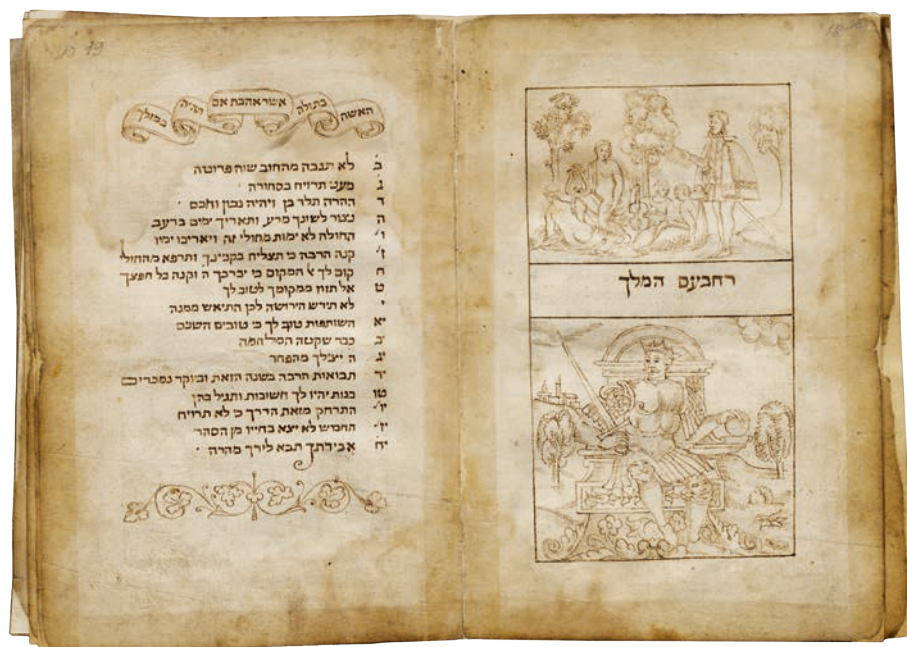 רחבעם המלך
האשה בתולה אשר אהבת אם תהיה במולך
ב לא תגבה מהחוב שוה פרוטה
ג מעט תרויח בסחורה
ד ההרה תלד בן ויהיה נבון וחכם
ה נצור לשונך מרע ותאריך ימים ברעב
ו החולה לא ימות מחולי זה ויאריכו ימיו
ז קנה הרבה כי תצליח בקנינך ותרפא מהחולי
ח קום לך אל המקום כי יברכך ה וקנה כל חפצך
ט אל תזוז ממקומך לטוב לך
י לא תירש הירושה לכן התיאש ממנה
יא השותפות טוב לך כי טובים השנים
יב כבר שקטה המלחמה
יג ה יצילך מהפחד
יד תבואות הרבה בשנה הזאת וביוקר נמכרים
טו בנות יהיו לך חשובות ותגיל בהן
יו התרחק מזאת הדרך כי לא תרויח
יז התפוש לא יצא בחייו מן הסהר
יח אבידתך תבא לידך מהרה